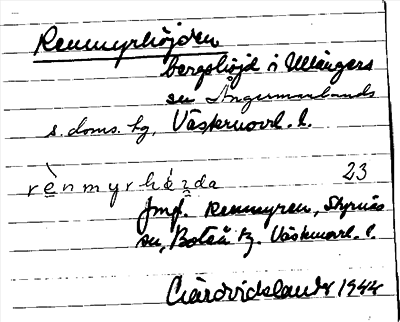 Renmyrhöjden
bergshöjd i Ullångers
sn Ångermanlands
s. doms. hg, Västernorrl. l.
rènmyrhö́ʒda 23
Jmf. Renmyren, Styrnäs
sn, Boteå tg. Västernorrl. l.
1944